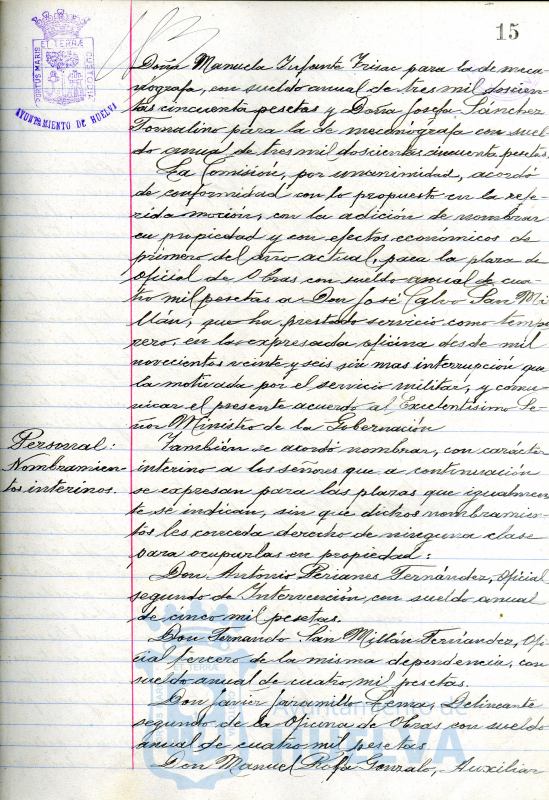 15
PORTUS MARIS ET TERRÆ CUSTODIA
AYUNTAMIENTO DE HUELVA
Doña Manuela Infante Trisac para la de meca
nógrafa, con sueldo anual de tres mil doscien
tas cincuenta pesetas y Doña Josefa Sánchez
Tornalino para la de mecanógrafa con suel
do anual de tres mil doscientas cincuenta pesetas.
La Comisión, por unanimidad, acordó
de conformidad con lo propuesto en la refe
rida moción, con la adición de nombrar
en propiedad y con efectos económicos de
primero del año actual, para la plaza de
oficial de Obras con sueldo anual de cua
tro mil pesetas a Don José Calvo San Mi
llán, que ha prestado servicio como tempo
rero, en la expresada oficina desde mil
novecientos veinte y seis sin mas interrupción que
la motivada por el servicio militar, y comu
nicar el presente acuerdo al Excelentísimo Se
ñor Ministro de la Gobernación
Personal:
Nombramien
tos interinos.
También se acordó nombrar, con carácter
interino a los señores que a continuación
se expresan para las plazas que igualmen
te se indican, sin que dichos nombramien
tos les conceda derecho de ninguna clase
para ocuparlas en propiedad:
Don Antonio Perianes Fernández, Oficial
segundo de Intervención, con sueldo anual
de cinco mil pesetas.
Don Fernando San Millán Fernández, Ofi
cial tercero de la misma dependencia, con
sueldo anual de cuatro mil pesetas.
Don Javier Jaramillo Lemas, Delineante
segundo de la Oficina de Obras con sueldo
anual de cuatro mil pesetas
Don Manuel Rofa Gonzalo, Auxiliar
Ayuntamiento de
HUELVA